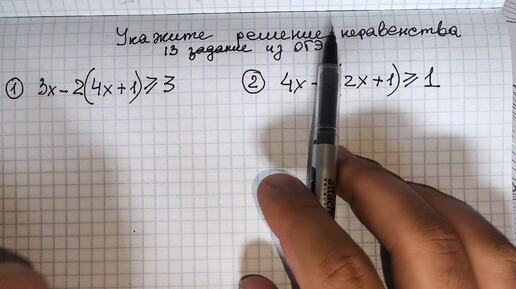 Укажите решение неравенства
13 задание из ОГЭ
① 3x-2(4x+1)≥3
② 4x- 2x+1)≥1